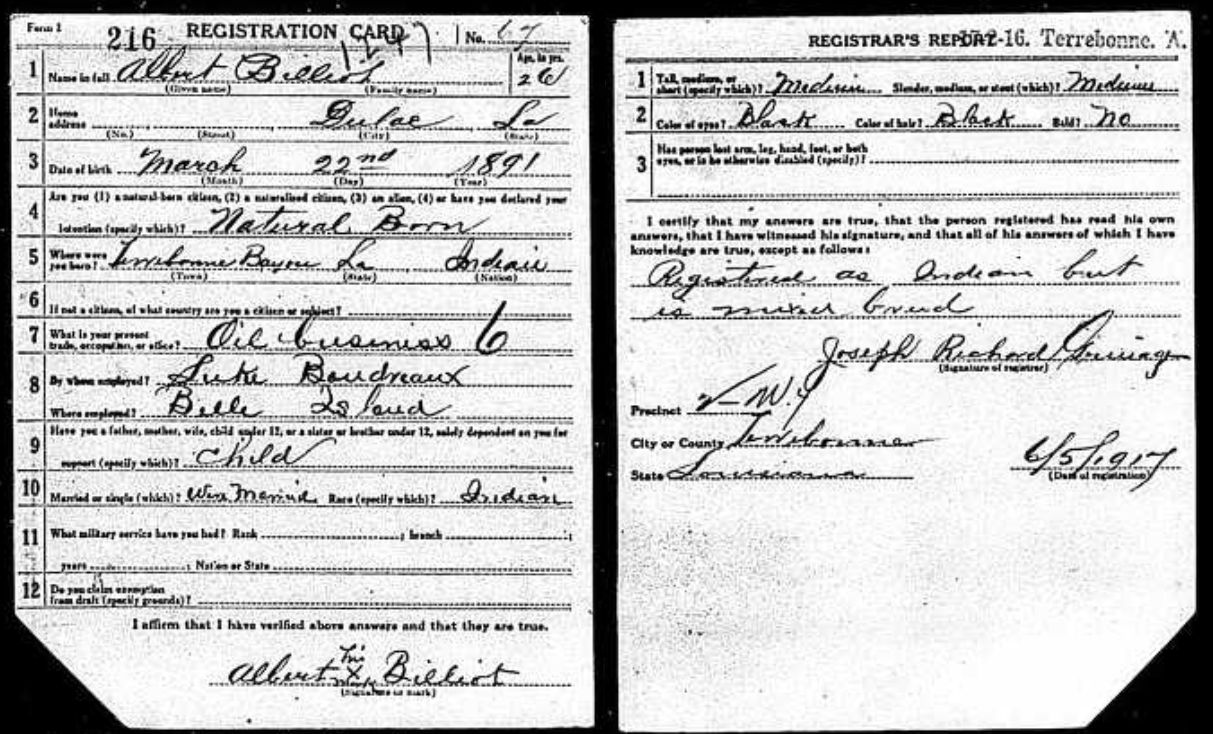 Form 1 216 REGISTRATION CARD 1247 No. 67
1 Name in full Albert Billiot Age, in yrs. 26
(Given name) (Family name)
2 Home address Dulac La
(No.) (Street) (City) (State)
3 Date of birth March 22nd 1891
(Month) (Day) (Year)
4 Are you (1) a natural-born citizen, (2) a naturalized citizen, (3) an alien, (4) or have you declared your
intention (specify which)? Natural Born
5 Where were you born? Terrebonne Bayou La Indian
(Town) (State) (Nation)
6 If not a citizen, of what country are you a citizen or subject?
7 What is your present trade, occupation, or office? Oil business 6
8 By whom employed? Luke Boudreaux
Where employed? Belle Island
9 Have you a father, mother, wife, child under 12, or a sister or brother under 12, solely dependent on you for
support (specify which)? Child
10 Married or single (which)? Married Race (specify which)? Indian
11 What military service have you had? Rank ; branch ;
years ; Nation or State
12 Do you claim exemption from draft (specify grounds)?
I affirm that I have verified above answers and that they are true.
Albert his X mark Billiot
(Signature or mark)
REGISTRAR'S REPORT 17-2-16. Terrebonne. A.
1 Tall, medium, or short (specify which)? Medium Slender, medium, or stout (which)? Medium
2 Color of eyes? Black Color of hair? Black Bald? No
3 Has person lost arm, leg, hand, foot, or both
eyes, or is he otherwise disabled (specify)?
I certify that my answers are true, that the person registered has read his own
answers, that I have witnessed his signature, and that all of his answers of which I have
knowledge are true, except as follows:
Registered as Indian but
is mixed breed
Joseph Richard
(Signature of registrar)
Precinct
City or County Terrebonne
State Louisiana 6/5/1917
(Date of registration)